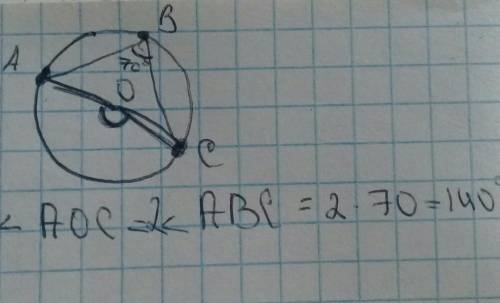 B
A
70°
O
C
< AOC = 2< ABC = 2 · 70 = 140°